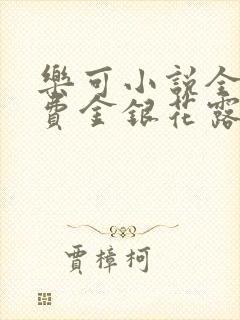 樂可小說全
費金銀花露
賈樟柯